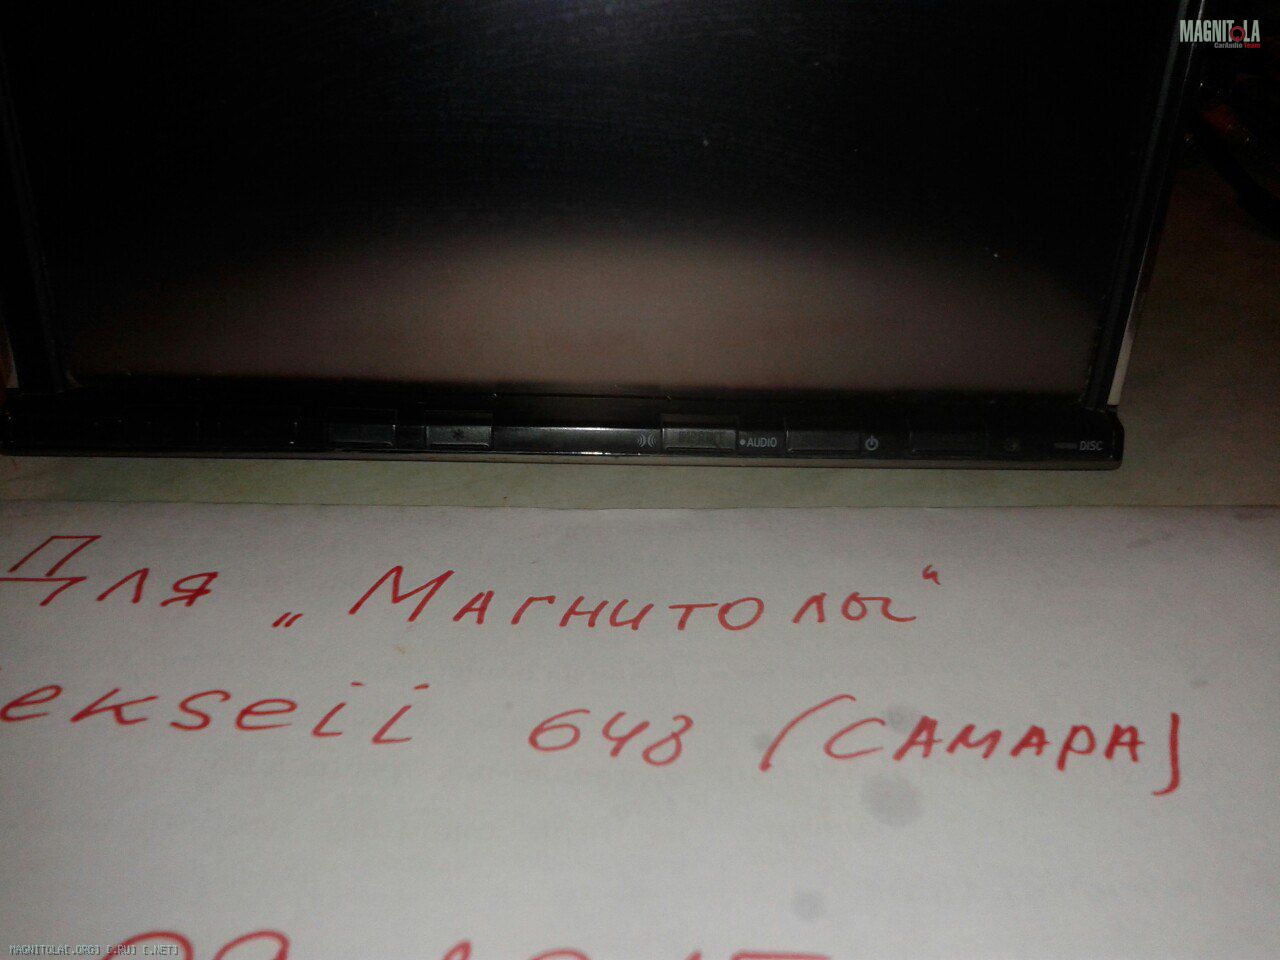 MAGNITOLA
CarAudio Team
AUDIO
DISC
Для „Магнитолы“
ekseii 648 (САМАРА)
MAGNITOLA[.ORG] [.RU] [.NET]